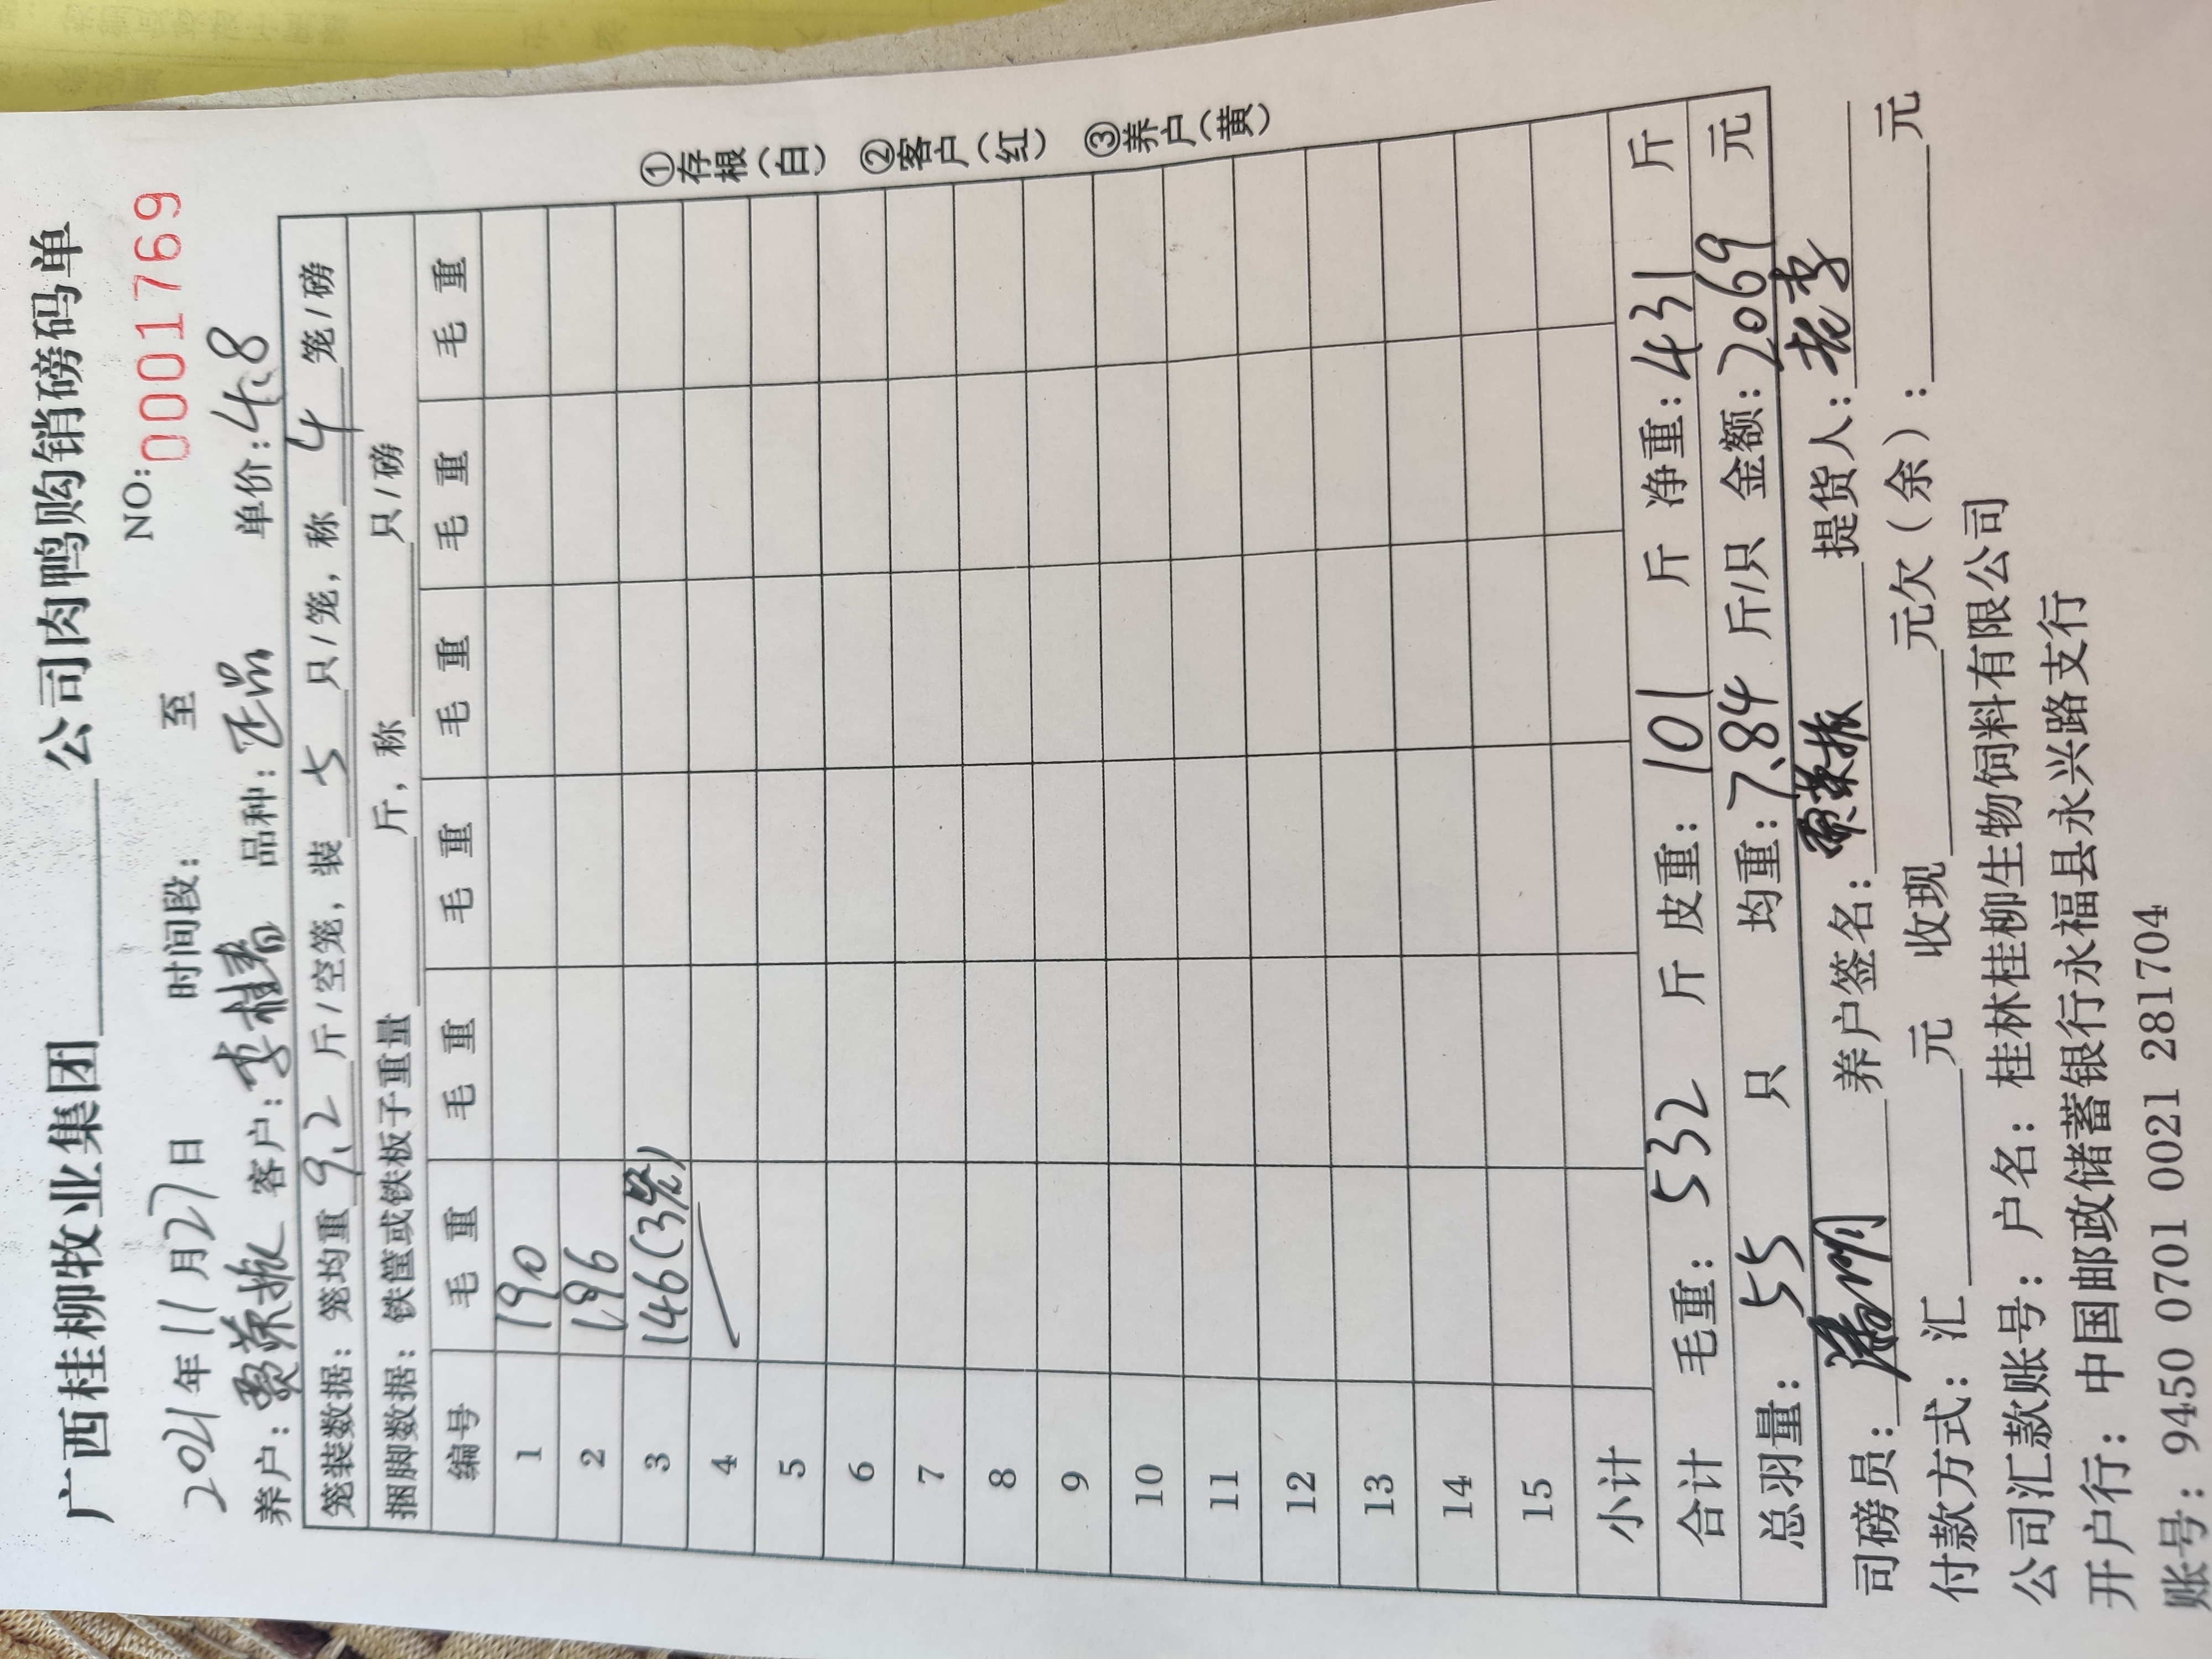 广西桂柳牧业集团________公司肉鸭购销磅码单
NO: 0001769
2021年11月27日 时间段: 至
养户: 荣振 客户: 李桂春 品种: 正品 单价: 4.8
笼装数据: 笼均重 9.2 斤/空笼, 装 5 只/笼, 称 4 笼/磅
捆脚数据: 铁筐或铁板子重量 斤, 称 只/磅
编号 毛重 毛重 毛重 毛重 毛重 毛重
1 190
2 196
3 146(3笼)
4
5
6
7
8
9
10
11
12
13
14
15
小计
合计 毛重: 532 斤 皮重: 101 斤 净重: 431 斤
总羽量: 55 只 均重: 7.84 斤/只 金额: 2069 元
司磅员: 养户签名: 荣振 提货人: 老李
付款方式: 汇 元 收现 元欠(余): 元
公司汇款账号: 户名: 桂林桂柳生物饲料有限公司
开户行: 中国邮政储蓄银行永福县永兴路支行
账号: 9450 0701 0021 281704
①存根(白) ②客户(红) ③养户(黄)